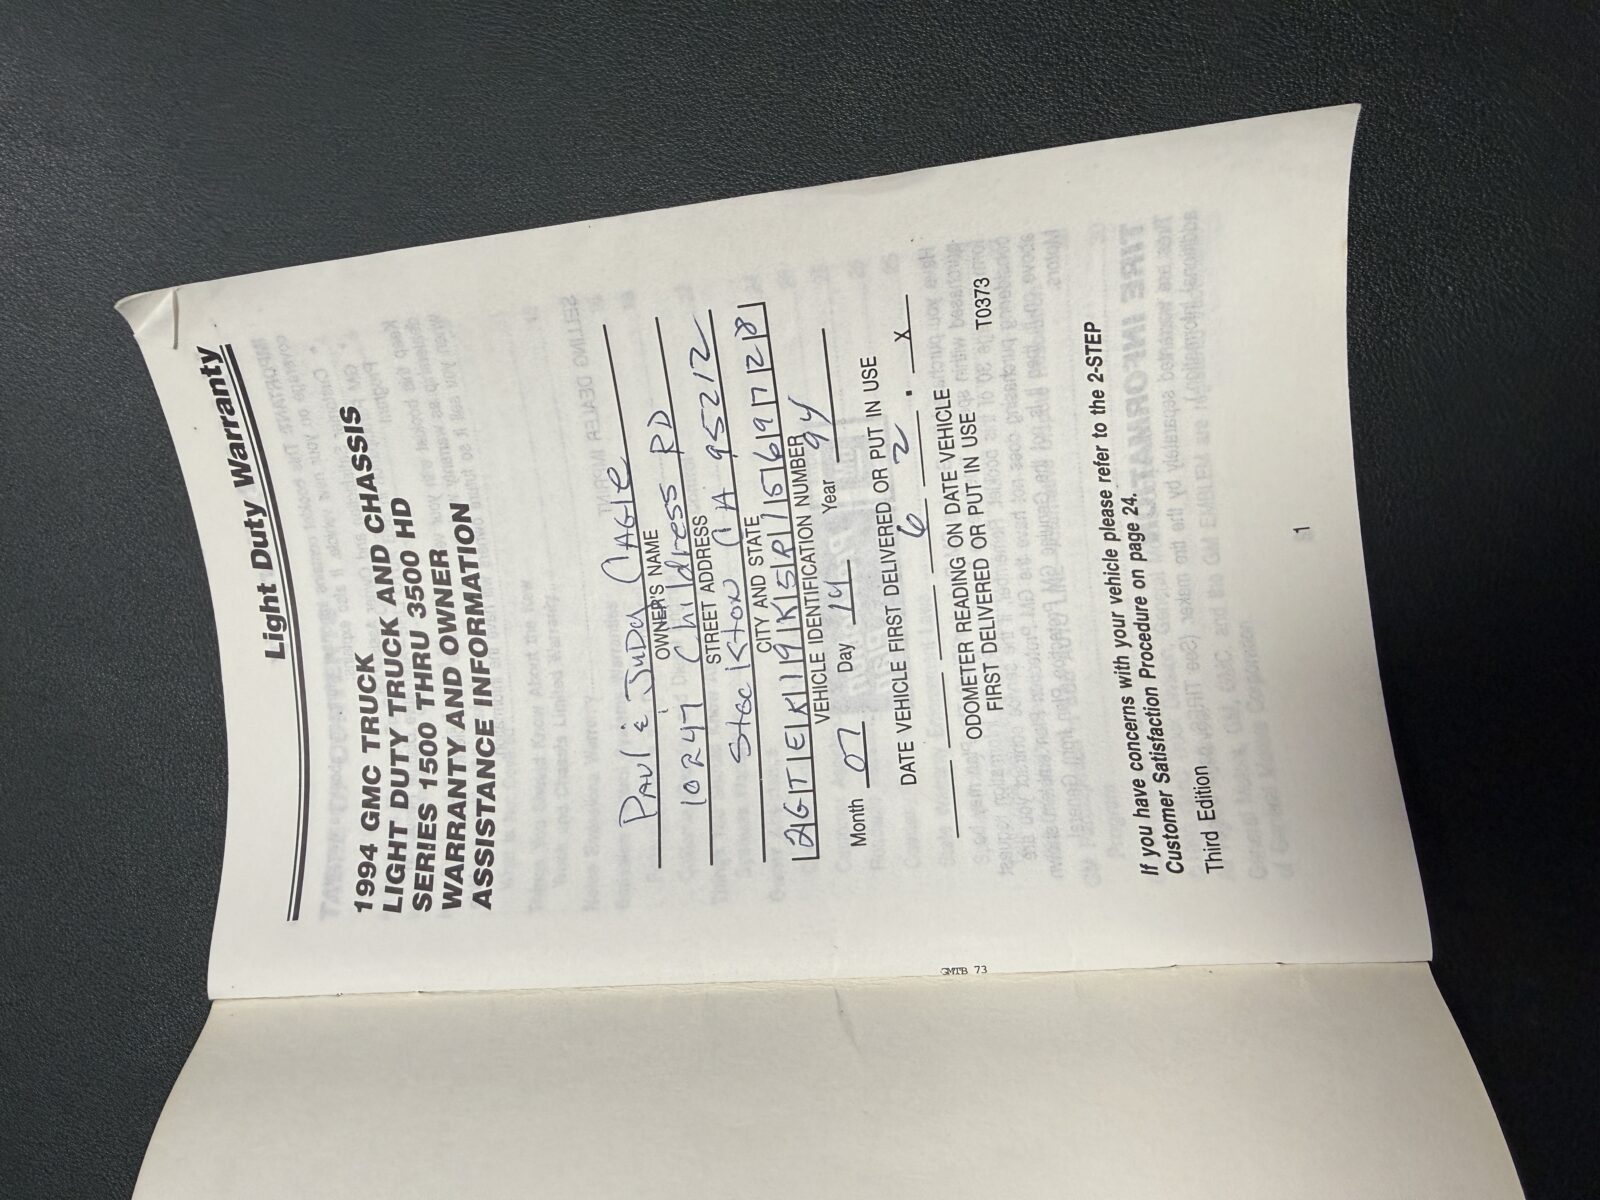 Light Duty Warranty
1994 GMC TRUCK
LIGHT DUTY TRUCK AND CHASSIS
SERIES 1500 THRU 3500 HD
WARRANTY AND OWNER
ASSISTANCE INFORMATION
PAUL & JuDy CAGle
OWNER'S NAME
10247 Childress RD
STREET ADDRESS
Stockton CA 95212
CITY AND STATE
2GTEK19K5R1569728
VEHICLE IDENTIFICATION NUMBER
Month 07 Day 14 Year 94
DATE VEHICLE FIRST DELIVERED OR PUT IN USE
6 2 . x
ODOMETER READING ON DATE VEHICLE
FIRST DELIVERED OR PUT IN USE T0373
If you have concerns with your vehicle please refer to the 2-STEP
Customer Satisfaction Procedure on page 24.
Third Edition
1
GMTB 73